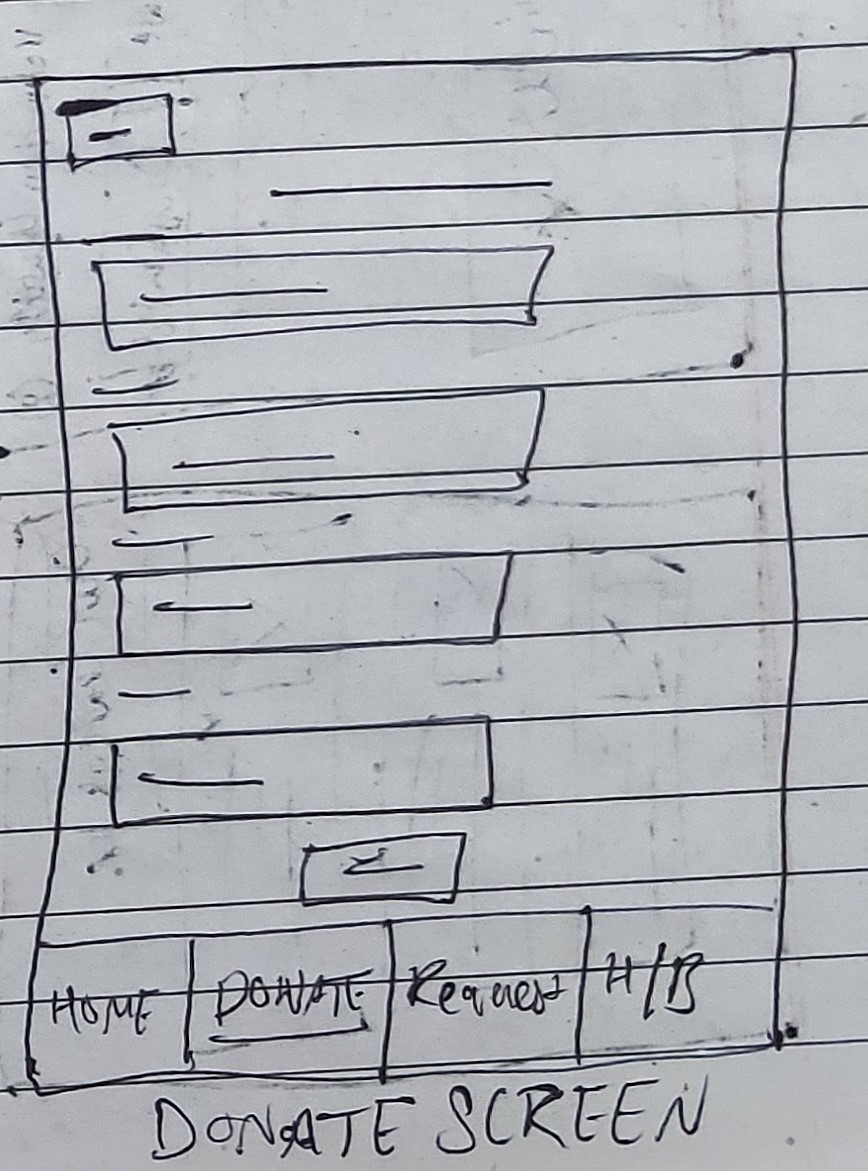 HOME DONATE Request H/B
DONATE SCREEN